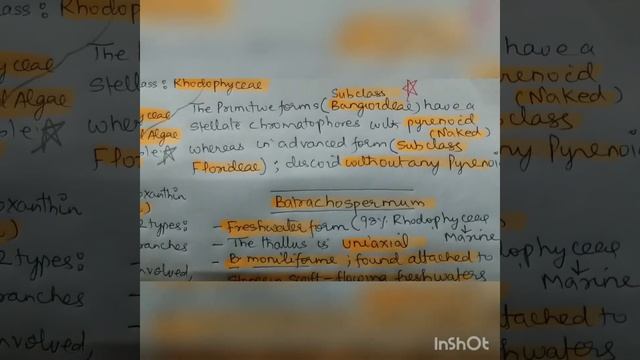 ass: Rhodophyceae
Subclass
The Primitive forms (Bangiodeae) have a
stellate chromatophores with pyrenoid
(Naked)
whereas in advanced form (subclass
Florideae); discoid without any Pyrenoi
Batrachospermum
- Freshwater form (98% Rhodophyceae
Marine
- The thallus is uniaxial
- B moniliforme; found attached to
swift-flowing freshwaters
yceae
Algae
oxanthin
2 types:
ranches
nvolved,
have a
yrenoid
(Naked)
class
any Pyrenoi
ophyceae
Marine
ttached to
shwaters
InShOt